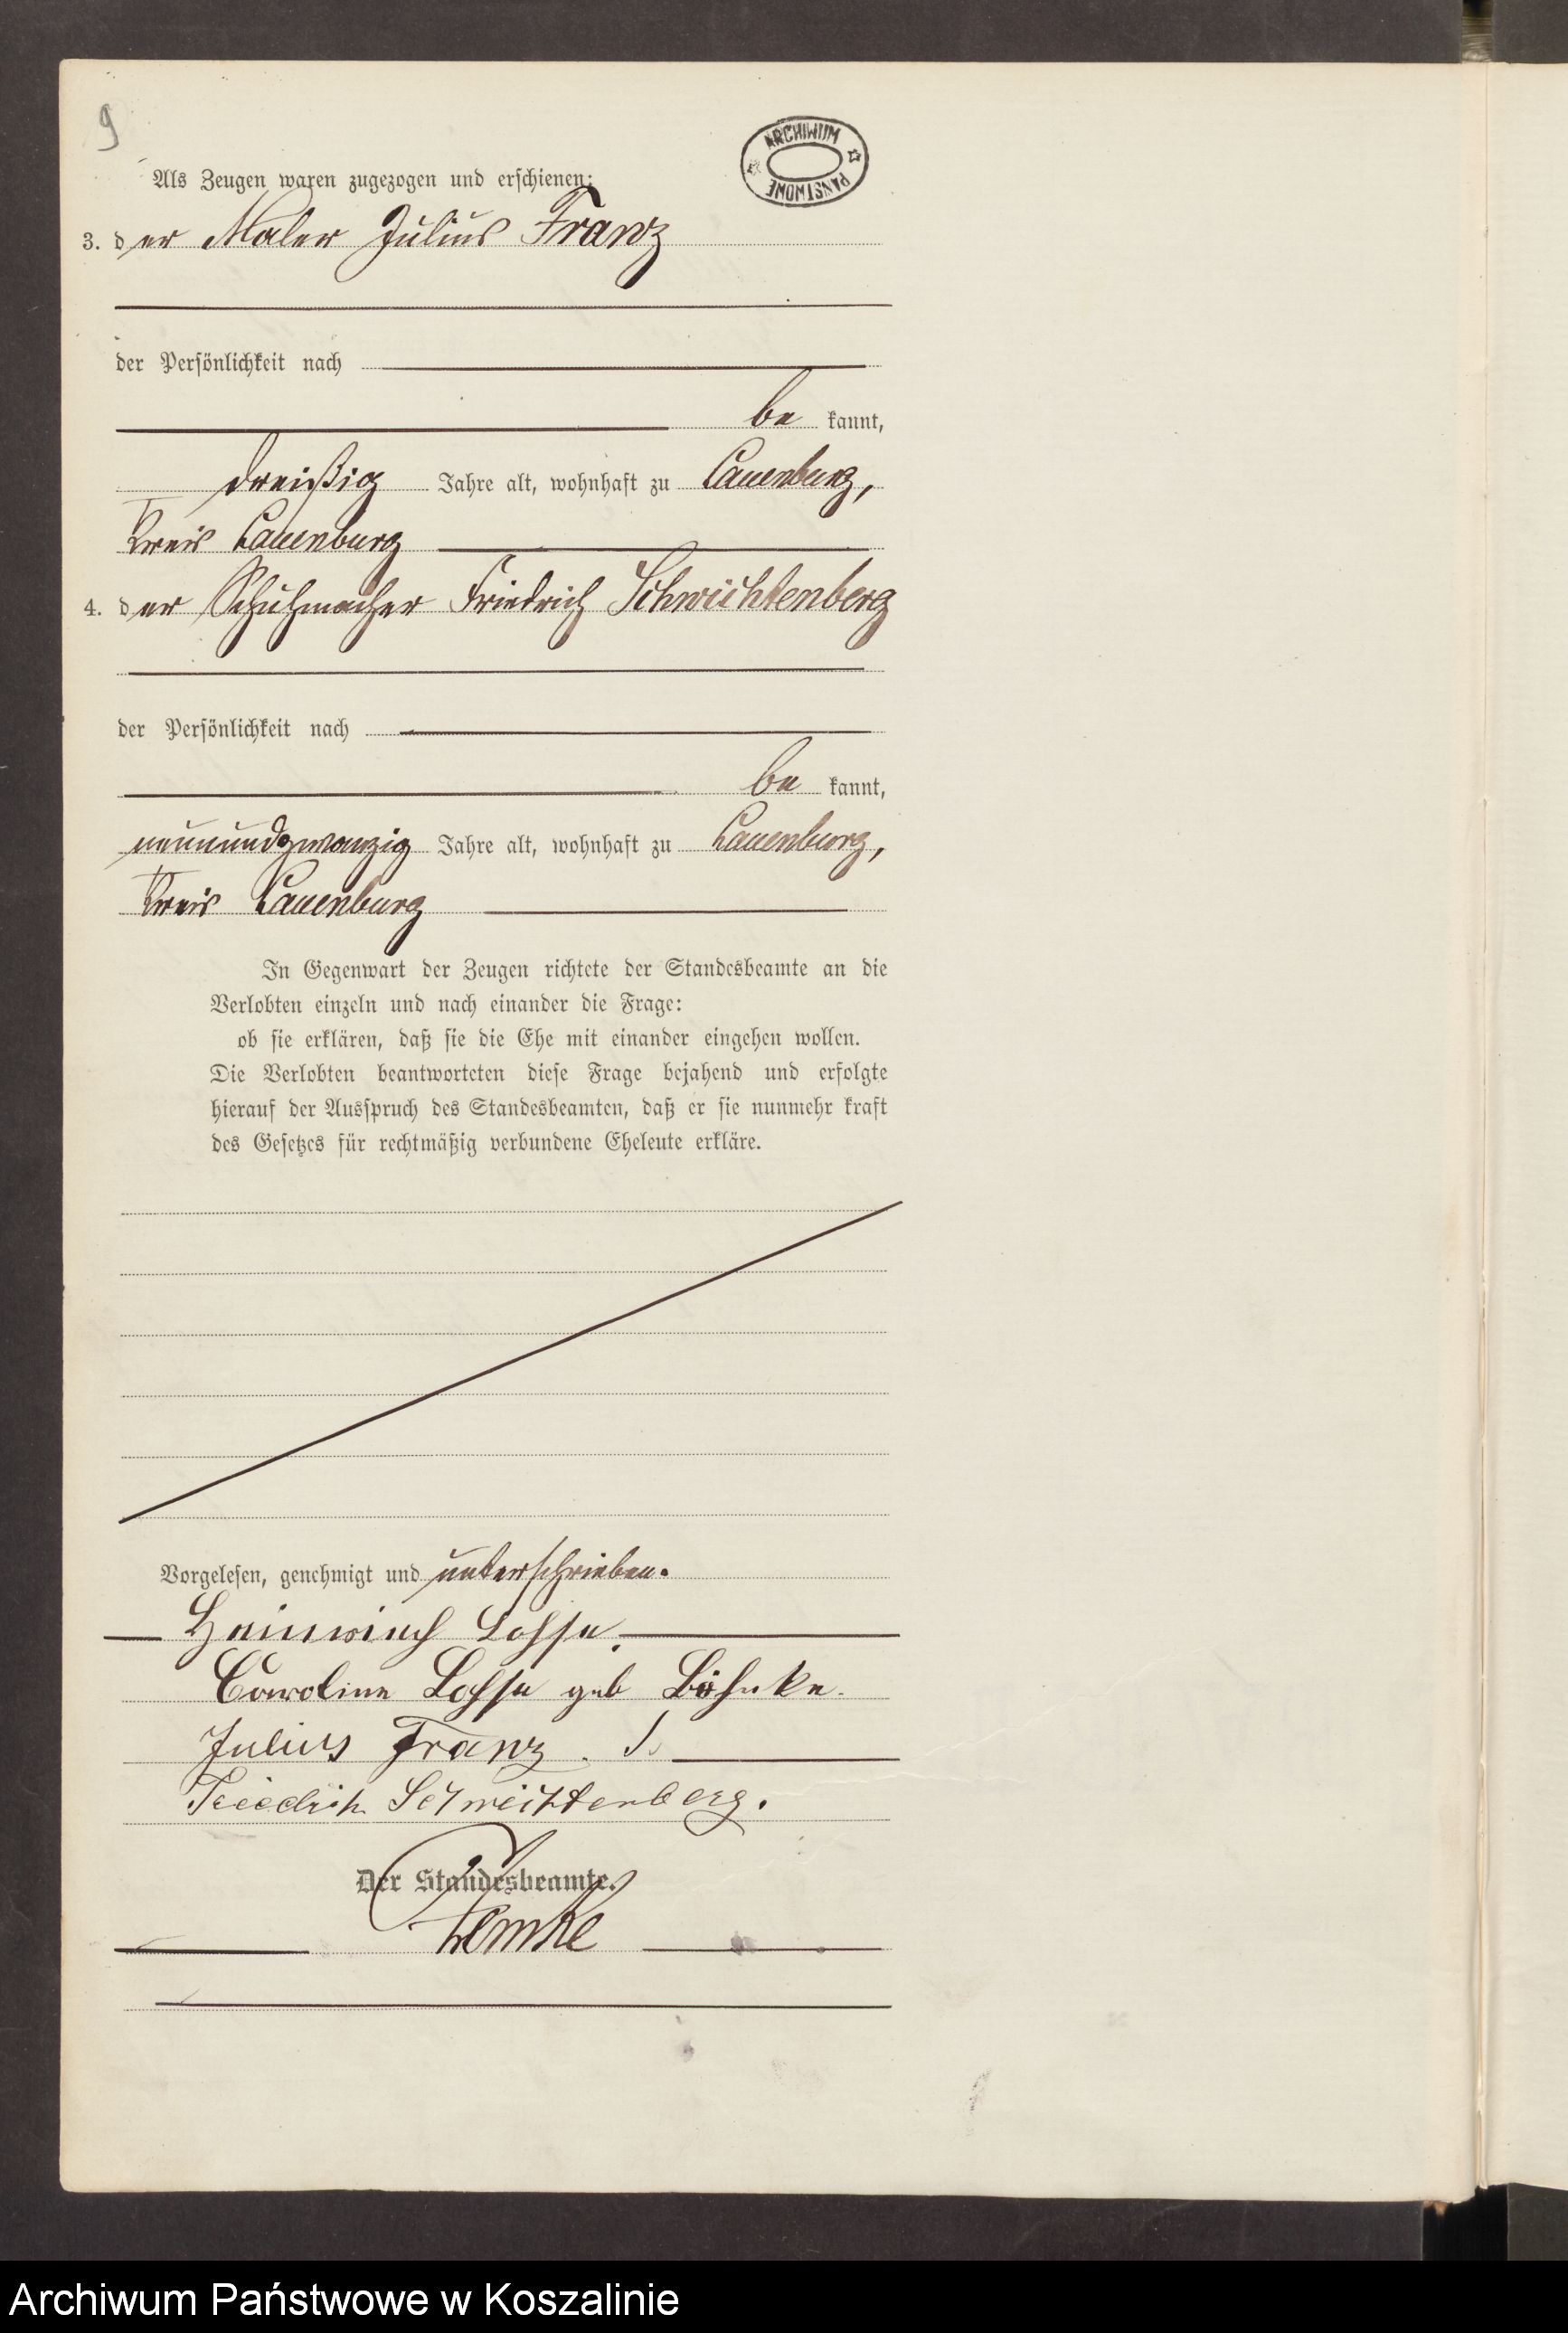 9
ARCHIWUM PAŃSTWOWE
Als Zeugen waren zugezogen und erschienen:
3. der Maler Julius Franz
der Persönlichkeit nach
be kannt,
dreißig Jahre alt, wohnhaft zu Lauenburg,
Kreis Lauenburg
4. der Schuhmacher Friedrich Schwichtenberg
der Persönlichkeit nach
be kannt,
neunundzwanzig Jahre alt, wohnhaft zu Lauenburg,
Kreis Lauenburg
In Gegenwart der Zeugen richtete der Standesbeamte an die
Verlobten einzeln und nach einander die Frage:
ob sie erklären, daß sie die Ehe mit einander eingehen wollen.
Die Verlobten beantworteten diese Frage bejahend und erfolgte
hierauf der Ausspruch des Standesbeamten, daß er sie nunmehr kraft
des Gesetzes für rechtmäßig verbundene Eheleute erkläre.
Vorgelesen, genehmigt und unterschrieben.
Heinrich Losse.
Caroline Losse geb Böhnke.
Julius Franz.
Friedrich Schwichtenberg.
Der Standesbeamte.
Archiwum Państwowe w Koszalinie